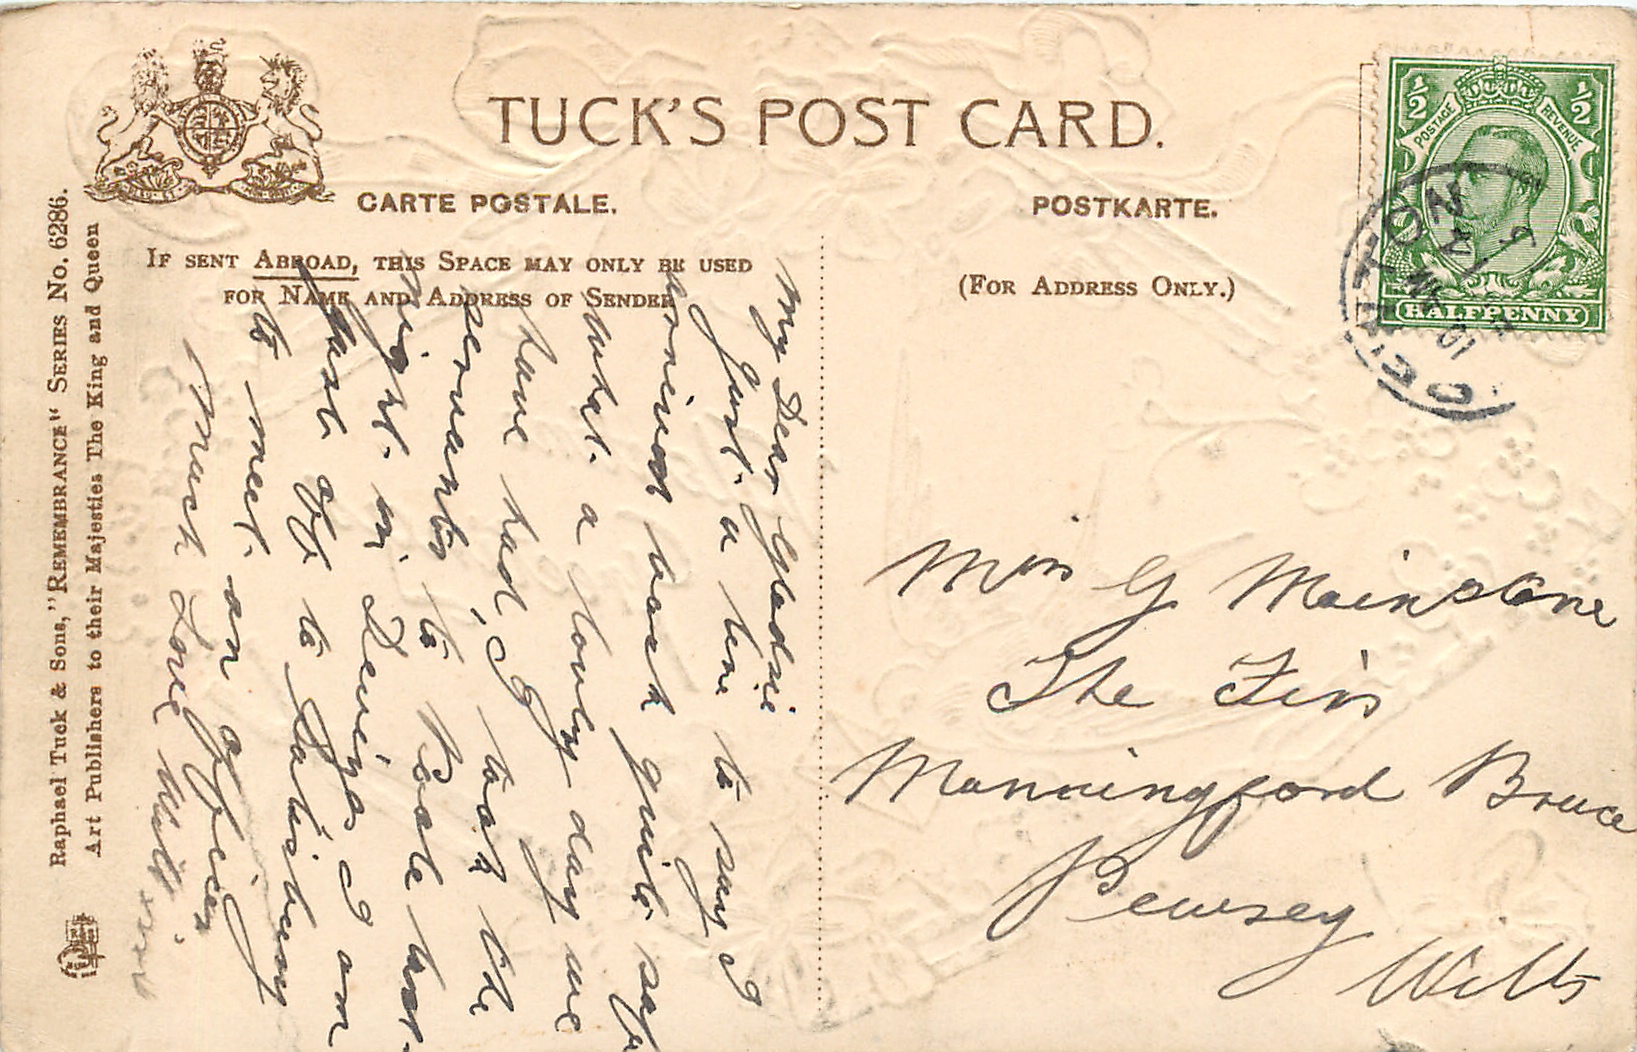 TUCK'S POST CARD.
CARTE POSTALE.
POSTKARTE.
IF SENT ABROAD, THIS SPACE MAY ONLY BE USED
FOR NAME AND ADDRESS OF SENDER
(FOR ADDRESS ONLY.)
Raphael Tuck & Sons, "REMEMBRANCE" SERIES No. 6286.
Art Publishers to their Majesties The King and Queen
½ ½
POSTAGE REVENUE
HALFPENNY
My Dear Gladsie
Just a line to say I
arrived back quite safe
what a lovely day we
have had, I took the
servants to Poole last
night in Devizes I am
just off to Salisbury
to meet an officer
Much Love Will
xxx
Miss G Mainstone
The Firs
Manningford Bruce
Pewsey
Wilts